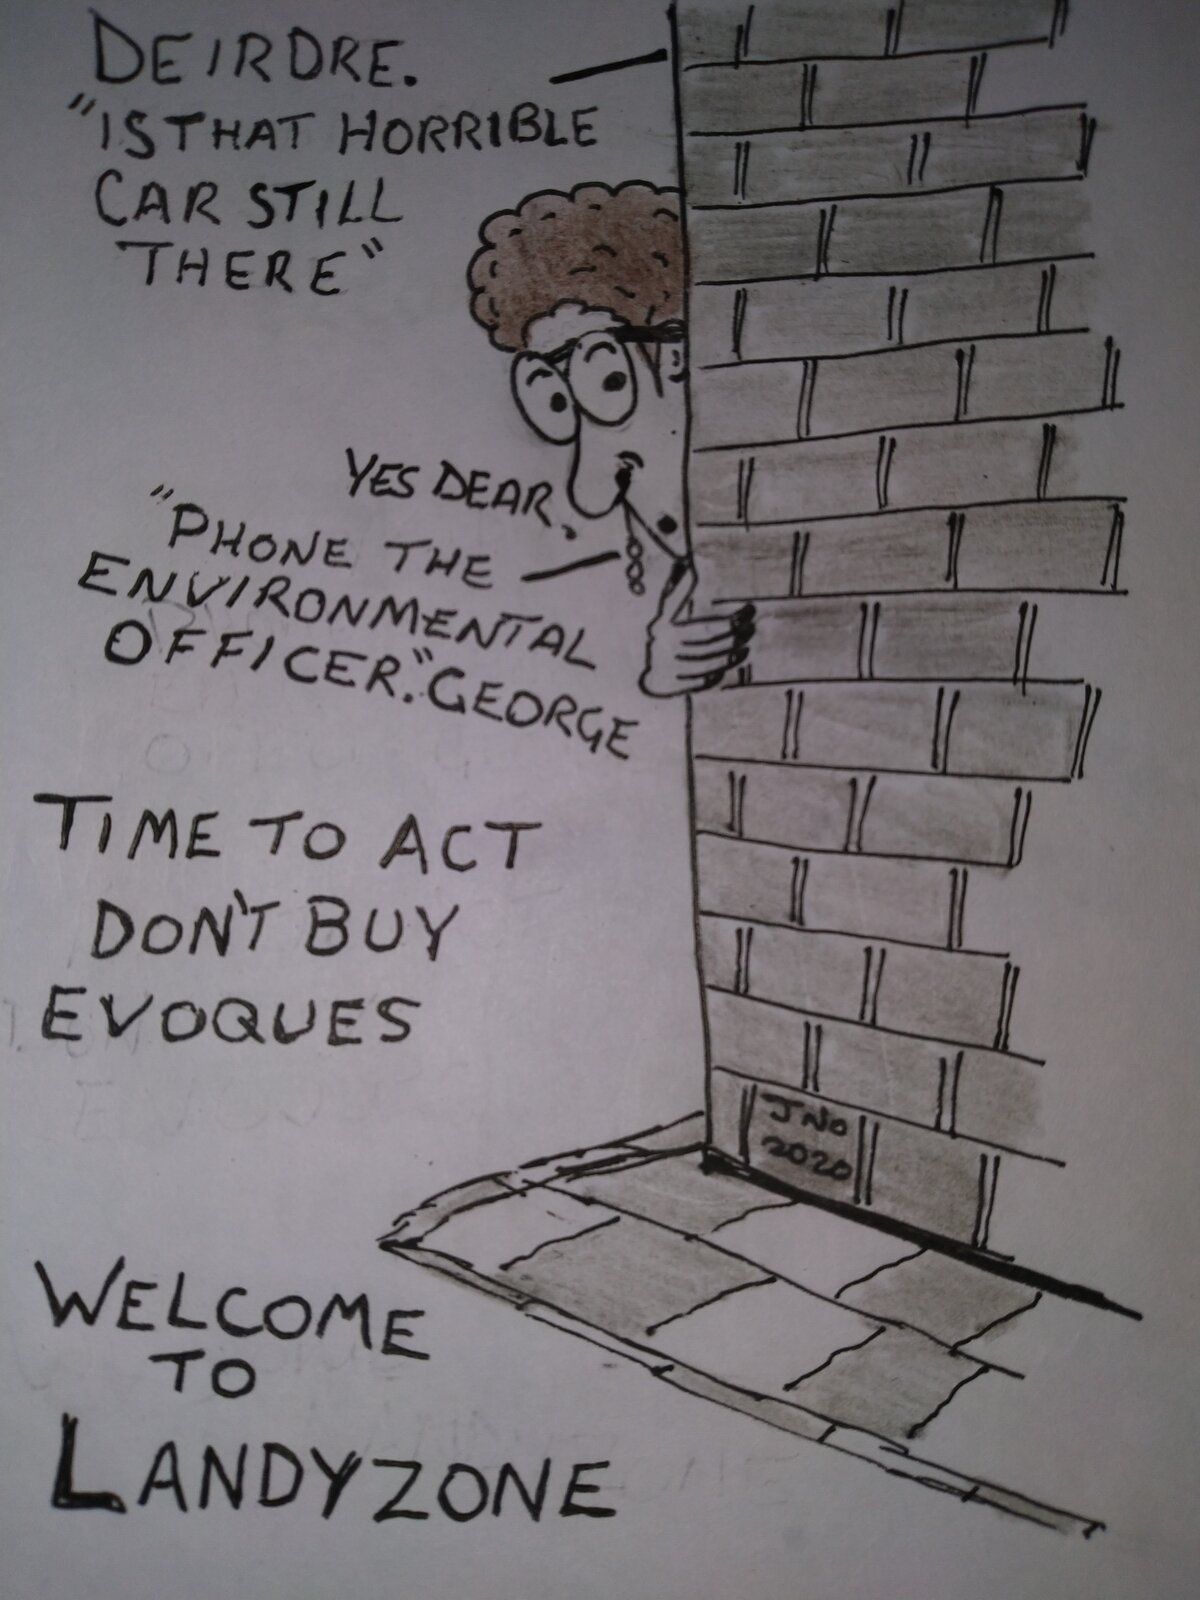 DEIRDRE.
"IS THAT HORRIBLE
CAR STILL
THERE"
YES DEAR.
"PHONE THE
ENVIRONMENTAL
OFFICER." GEORGE
TIME TO ACT
DON'T BUY
EVOQUES
JNO
2020
WELCOME
TO
LANDYZONE